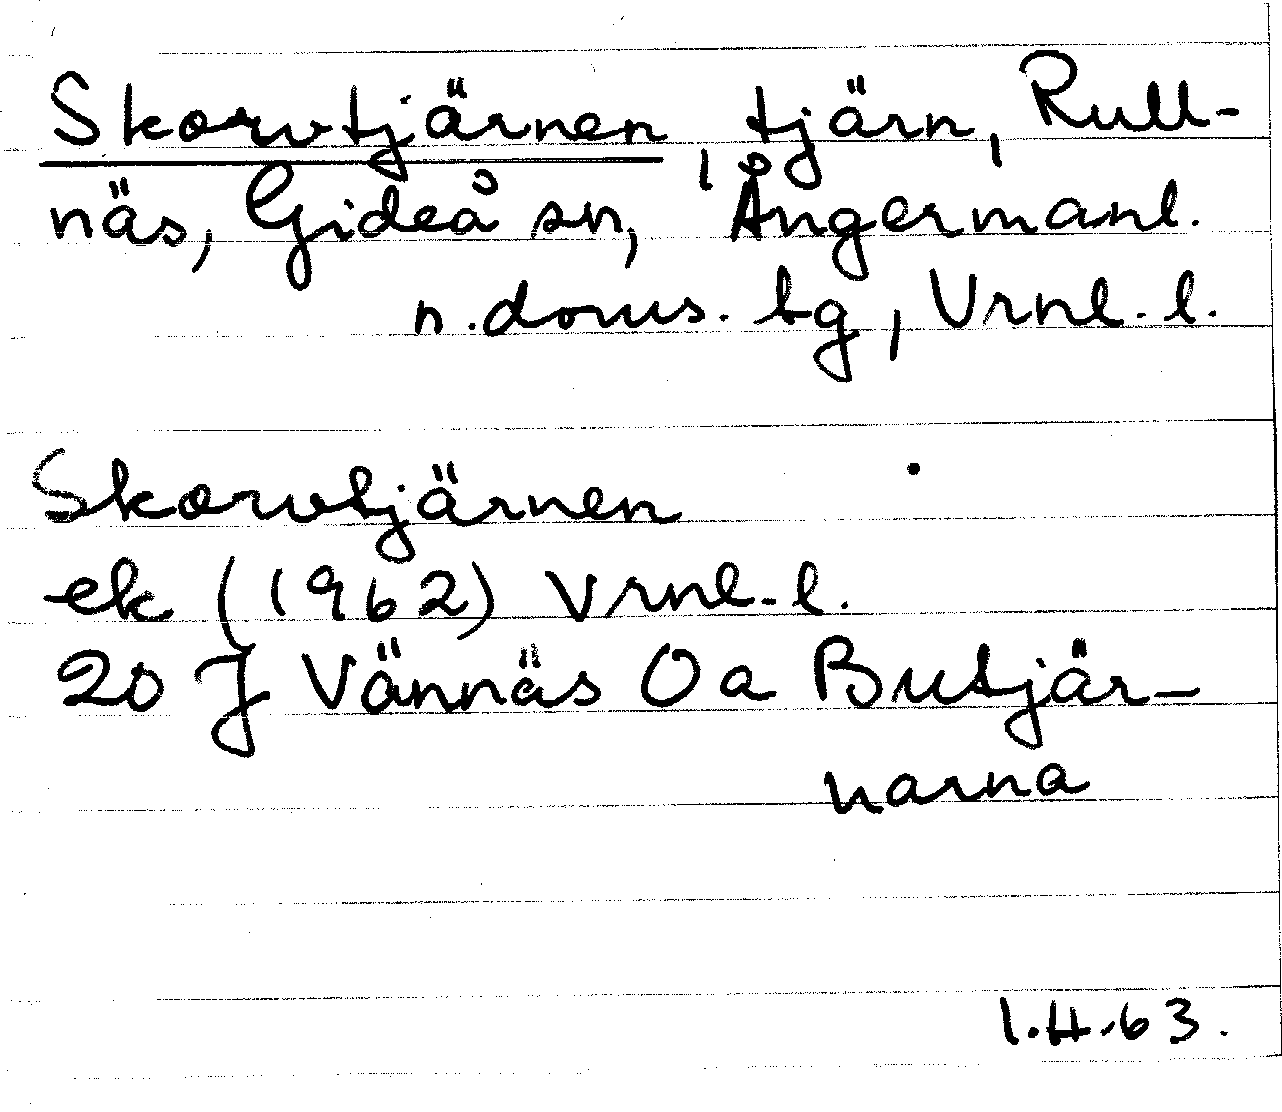 Skorvtjärnen, tjärn, Rull-
näs, Gideå sn, Ångermanl.
n. doms. bg, Vrnl. l.
Skorvtjärnen
ek (1962) Vrnl. l.
20 J Vännäs 0a Butjär-
narna
I.H.63.